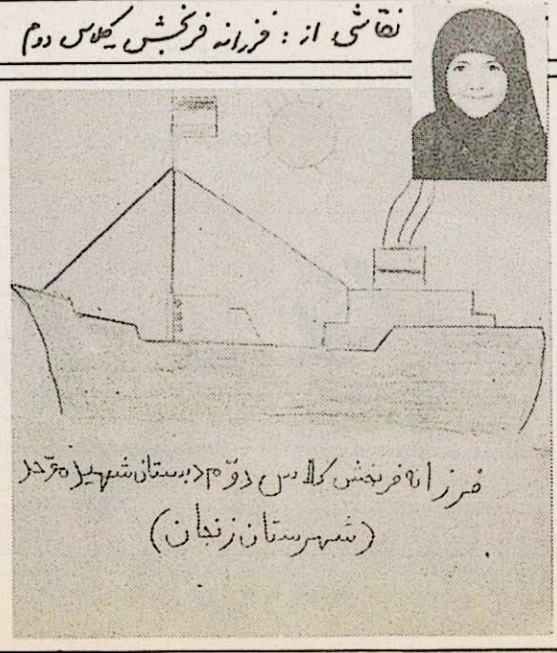 نقاشی از : فرزانه فرنجش کلاس دوم
فرزانه فرنجش کلاس دوّم دبستان شهید موّحد
(شهرستان زنجان)